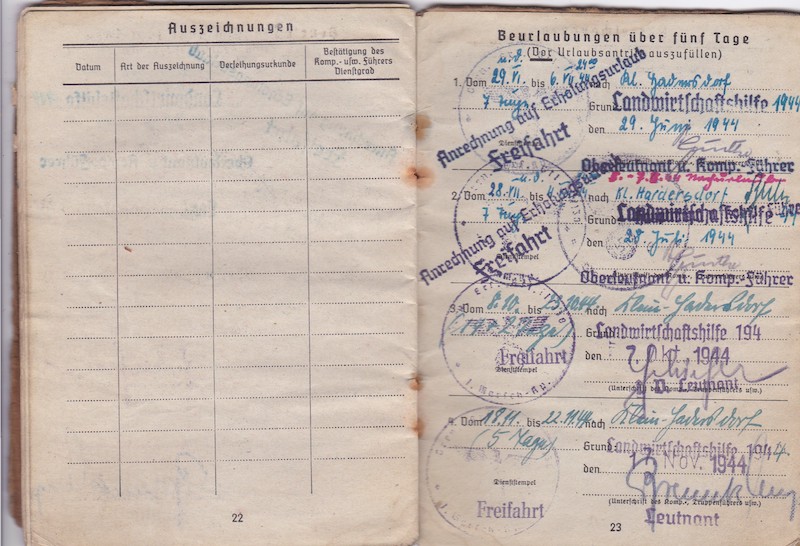 Auszeichnungen
Datum
Art der Auszeichnung
Verleihungsurkunde
Bestätigung des
Komp.- usw. Führers
Dienstgrad
22
Beurlaubungen über fünf Tage
(Der Urlaubsantritt auszufüllen)
1. Vom 29. VI. bis 6. VII. 44 nach Kl. Hadersdorf
7 Tage
Grund Landwirtschaftshilfe 1944
Anrechnung auf Erholungsurlaub
Freifahrt
den 29. Juni 1944
Günther
Oberleutnant u. Komp.-Führer
2. Vom 28. VII. bis nach Kl. Hardersdorf
7 Tage
Grund Landwirtschaftshilfe
Anrechnung auf Erholungsurlaub
Freifahrt
den 28 Juli 1944
Günther
Oberleutnant u. Komp.-Führer
3. Vom 8.10. bis 15.10.44 nach Klein-Hadersdorf
Grund Landwirtschaftshilfe 194
Freifahrt
den 7. Okt. 1944
Dienststempel
(Unterschrift des Komp.-, Truppenführers usw.)
Leutnant
4. Vom 18.11. bis 22.11.44 nach Klein-Hadersdorf
(5 Tage)
Grund Landwirtschaftshilfe 1944
den 17. Nov. 1944
Dienststempel
Freifahrt
(Unterschrift des Komp.-, Truppenführers usw.)
Leutnant
23